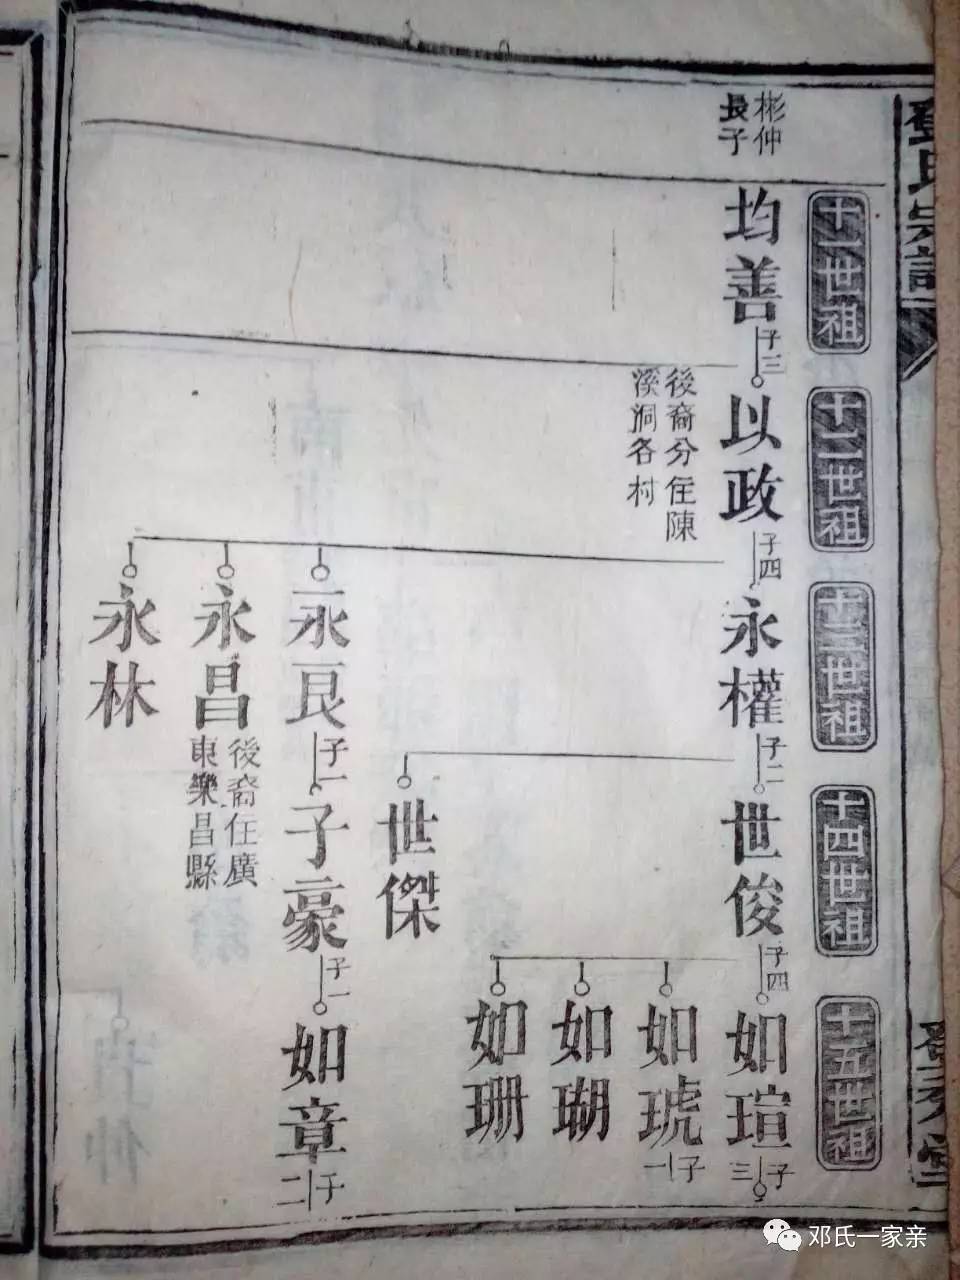 鄧氏宗譜
十一世祖
十二世祖
十三世祖
十四世祖
十五世祖
彬仲
長子
均善
子三
以政
後裔分住陳
溪洞各村
子四
永權
子二
世俊
子四
如瑄
子三
如琥
子一
如瑚
如珊
世傑
永良
子一
子豪
子一
如章
子二
永昌
後裔住廣
東樂昌縣
永林
邓氏一家亲